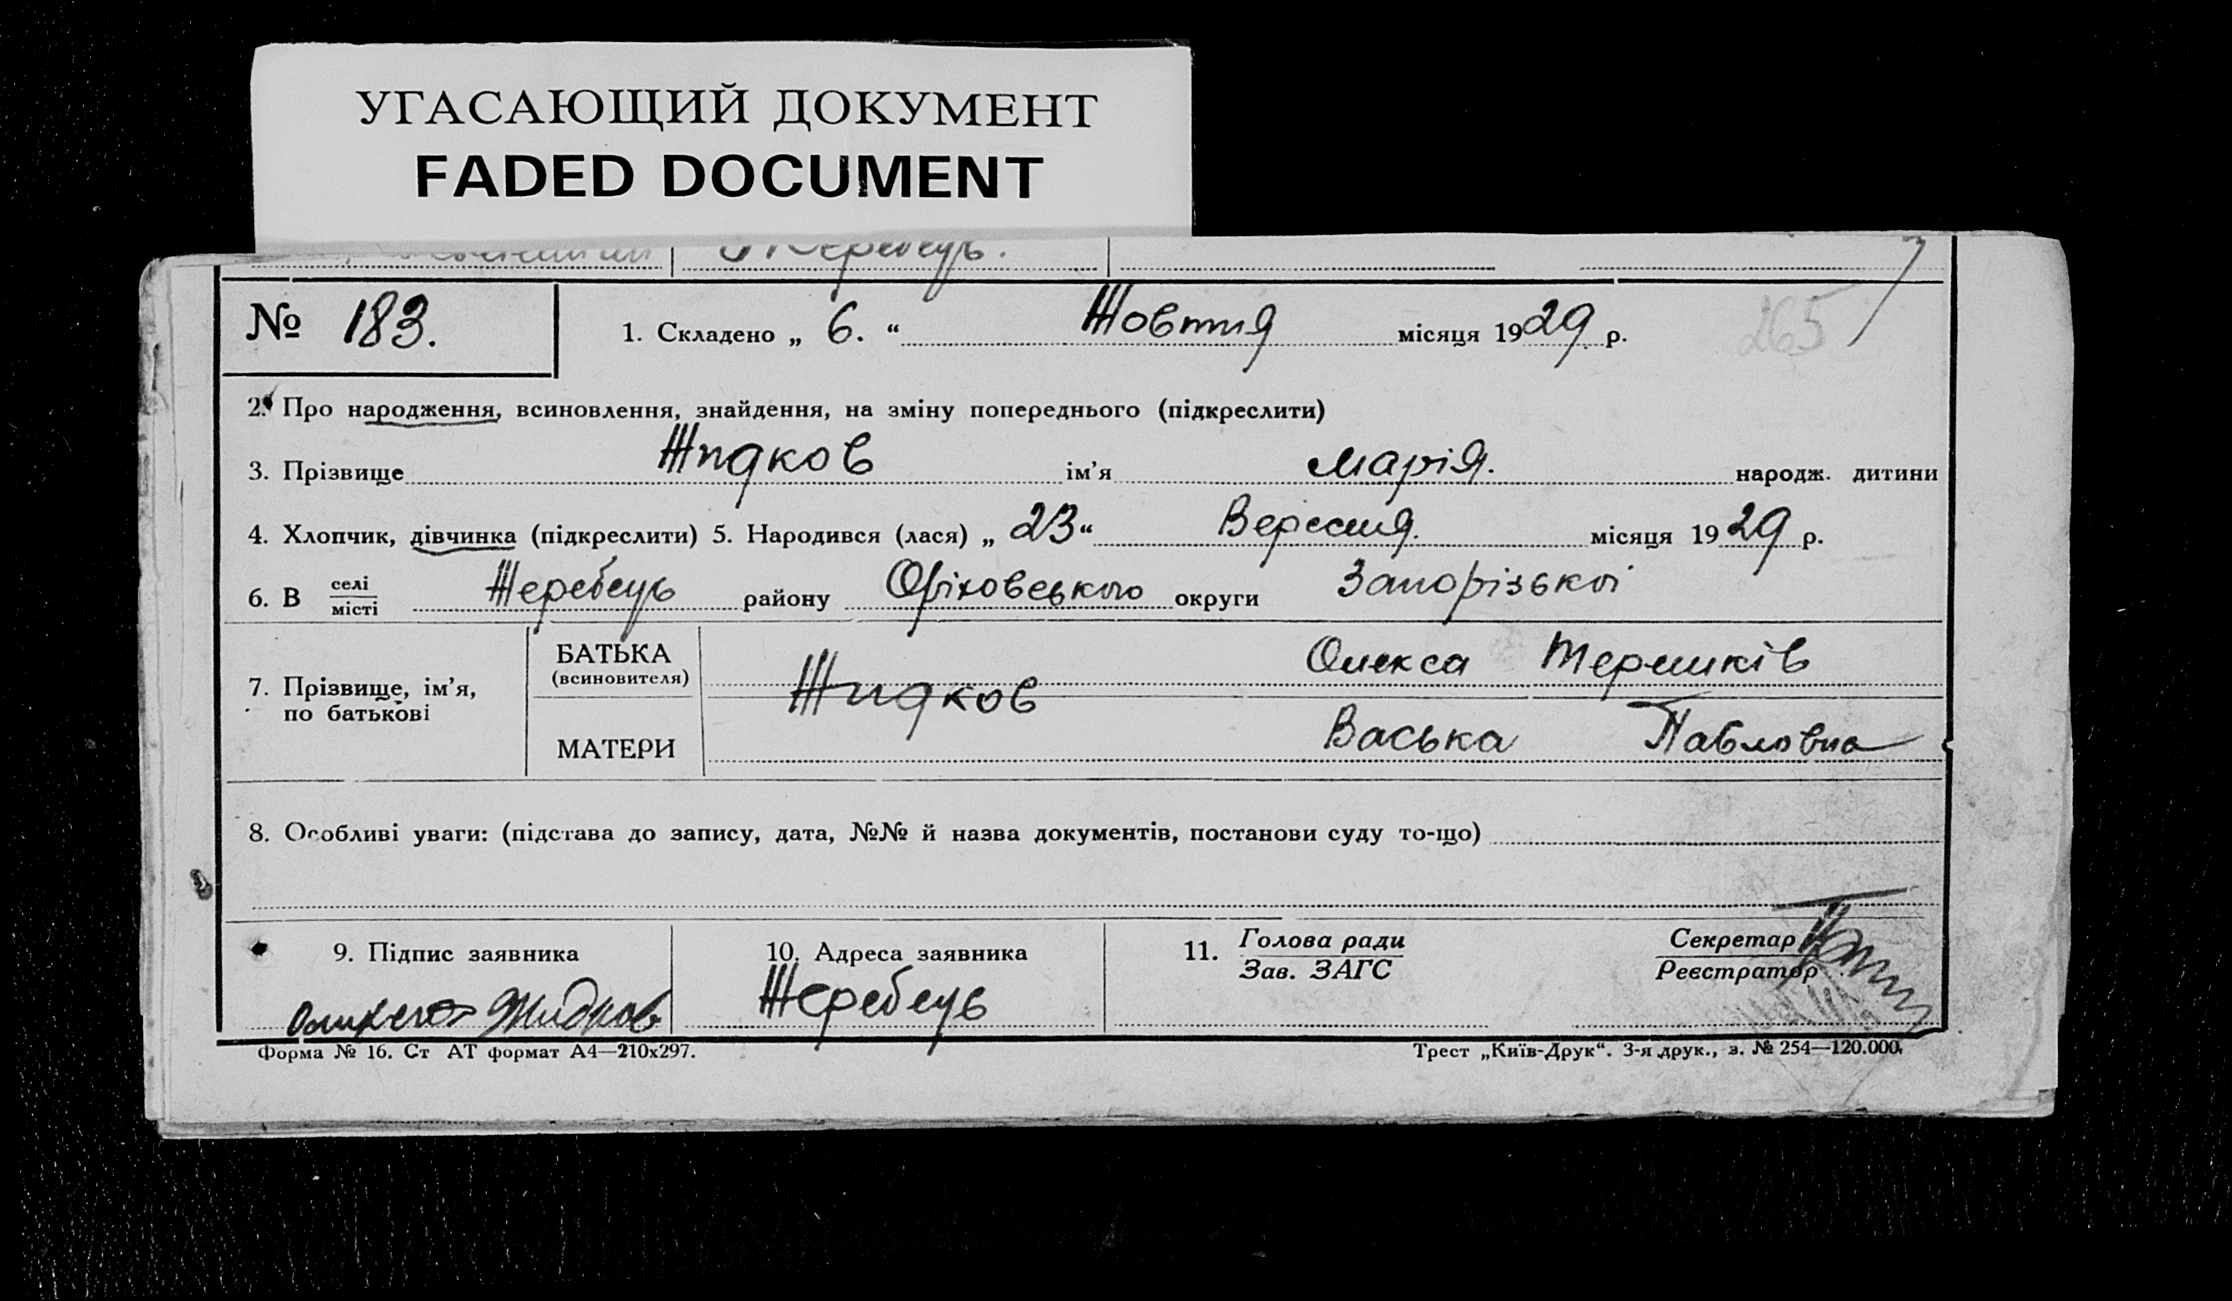 УГАСАЮЩИЙ ДОКУМЕНТ
FADED DOCUMENT
Жеребець.
№ 183.
1. Складено „ 6. “ Жовтня місяця 1929 р.
265
2. Про народження, всиновлення, знайдення, на зміну попереднього (підкреслити)
3. Прізвище Жидков ім’я Марія. народж. дитини
4. Хлопчик, дівчинка (підкреслити) 5. Народився (лася) „ 23 “ Вересня. місяця 1929 р.
6. В селі місті Жеребець району Оріховського округи Запорізької
7. Прізвище, ім’я, по батькові
БАТЬКА (всиновителя) Жидков Олекса
МАТЕРИ Васька Павловна
8. Особливі уваги: (підстава до запису, дата, №№ й назва документів, постанови суду то-що)
9. Підпис заявника
10. Адреса заявника
11. Голова ради Зав. ЗАГС
Секретар Реєстратор
Жидков
Жеребець
Форма № 16. Ст АТ формат А4—210х297.
Трест „Київ-Друк“. 3-я друк., з. № 254—120.000.